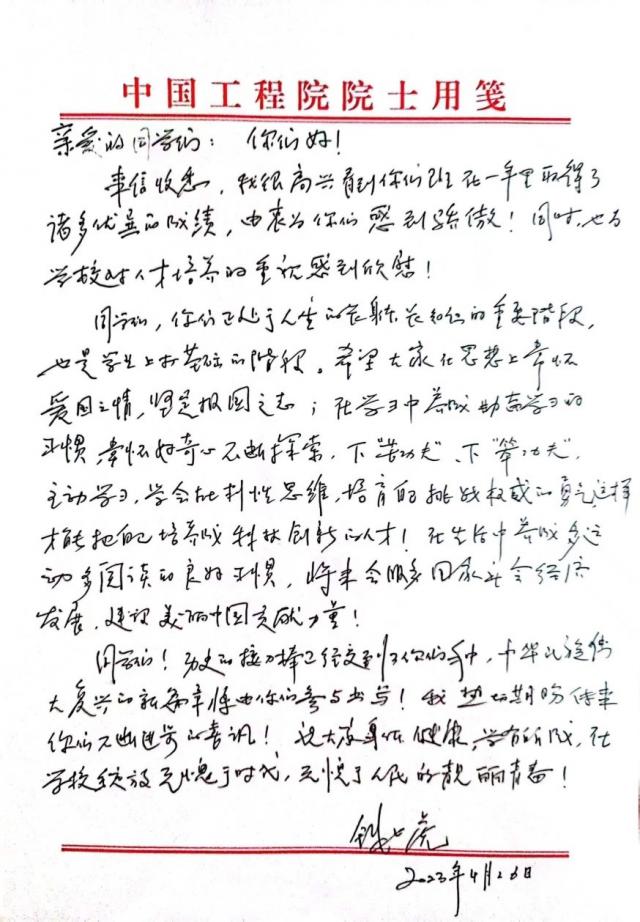 中国工程院院士用笺
亲爱的同学们：你们好！
来信收悉，我很高兴看到你们班在一年里取得了
诸多优异的成绩，由衷为你们感到骄傲！同时，也为
学校对人才培养的重视感到欣慰！
同学们，你们正处于人生的长身体长知识的重要阶段，
也是学业上打基础的阶段。希望大家在思想上常怀
爱国之情，坚定报国之志；在学习中养成勤奋学习的
习惯，常怀好奇心不断探索，下“苦功夫”、下“笨功夫”，
主动学习，学会批判性思维，培育的挑战权威的勇气，这样
才能把自己培养成科技创新的人才！在生活中养成多运
动多阅读的良好习惯，将来会服务国家社会经济
发展，建设美丽中国贡献力量！
同学们！历史的接力棒已经交到了你们手中，中华民族伟
大复兴的新篇章将由你们参与书写！我热切期盼传来
你们不断进步的喜讯！祝大家身体健康，学有所成，在
学校绽放无愧于时代，无愧于人民的靓丽青春！
钱七虎
2023年4月26日